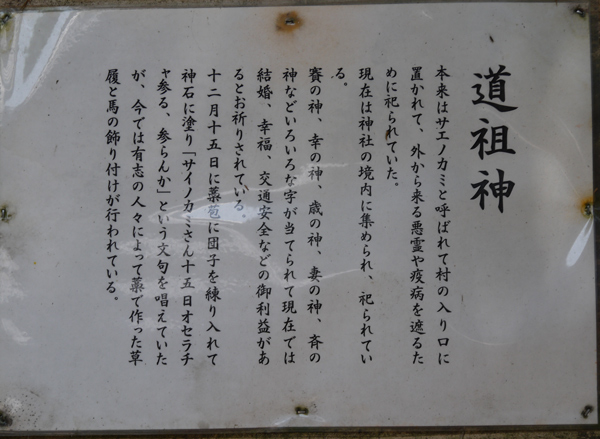 道祖神
本来はサエノカミと呼ばれて村の入り口に
置かれて、外から来る悪霊や疫病を遮るた
めに祀られていた。
現在は神社の境内に集められ、祀られてい
る。
賽の神、幸の神、歳の神、妻の神、斉の
神などいろいろな字が当てられて現在では
結婚、幸福、交通安全などの御利益があ
るとお祈りされている。
十二月十五日に藁苞に団子を練り入れて
神石に塗り「サイノカミさん十五日オセラチ
ャ参る、参らんか」という文句を唱えていた
が、今では有志の人々によって藁で作った草
履と馬の飾り付けが行われている。